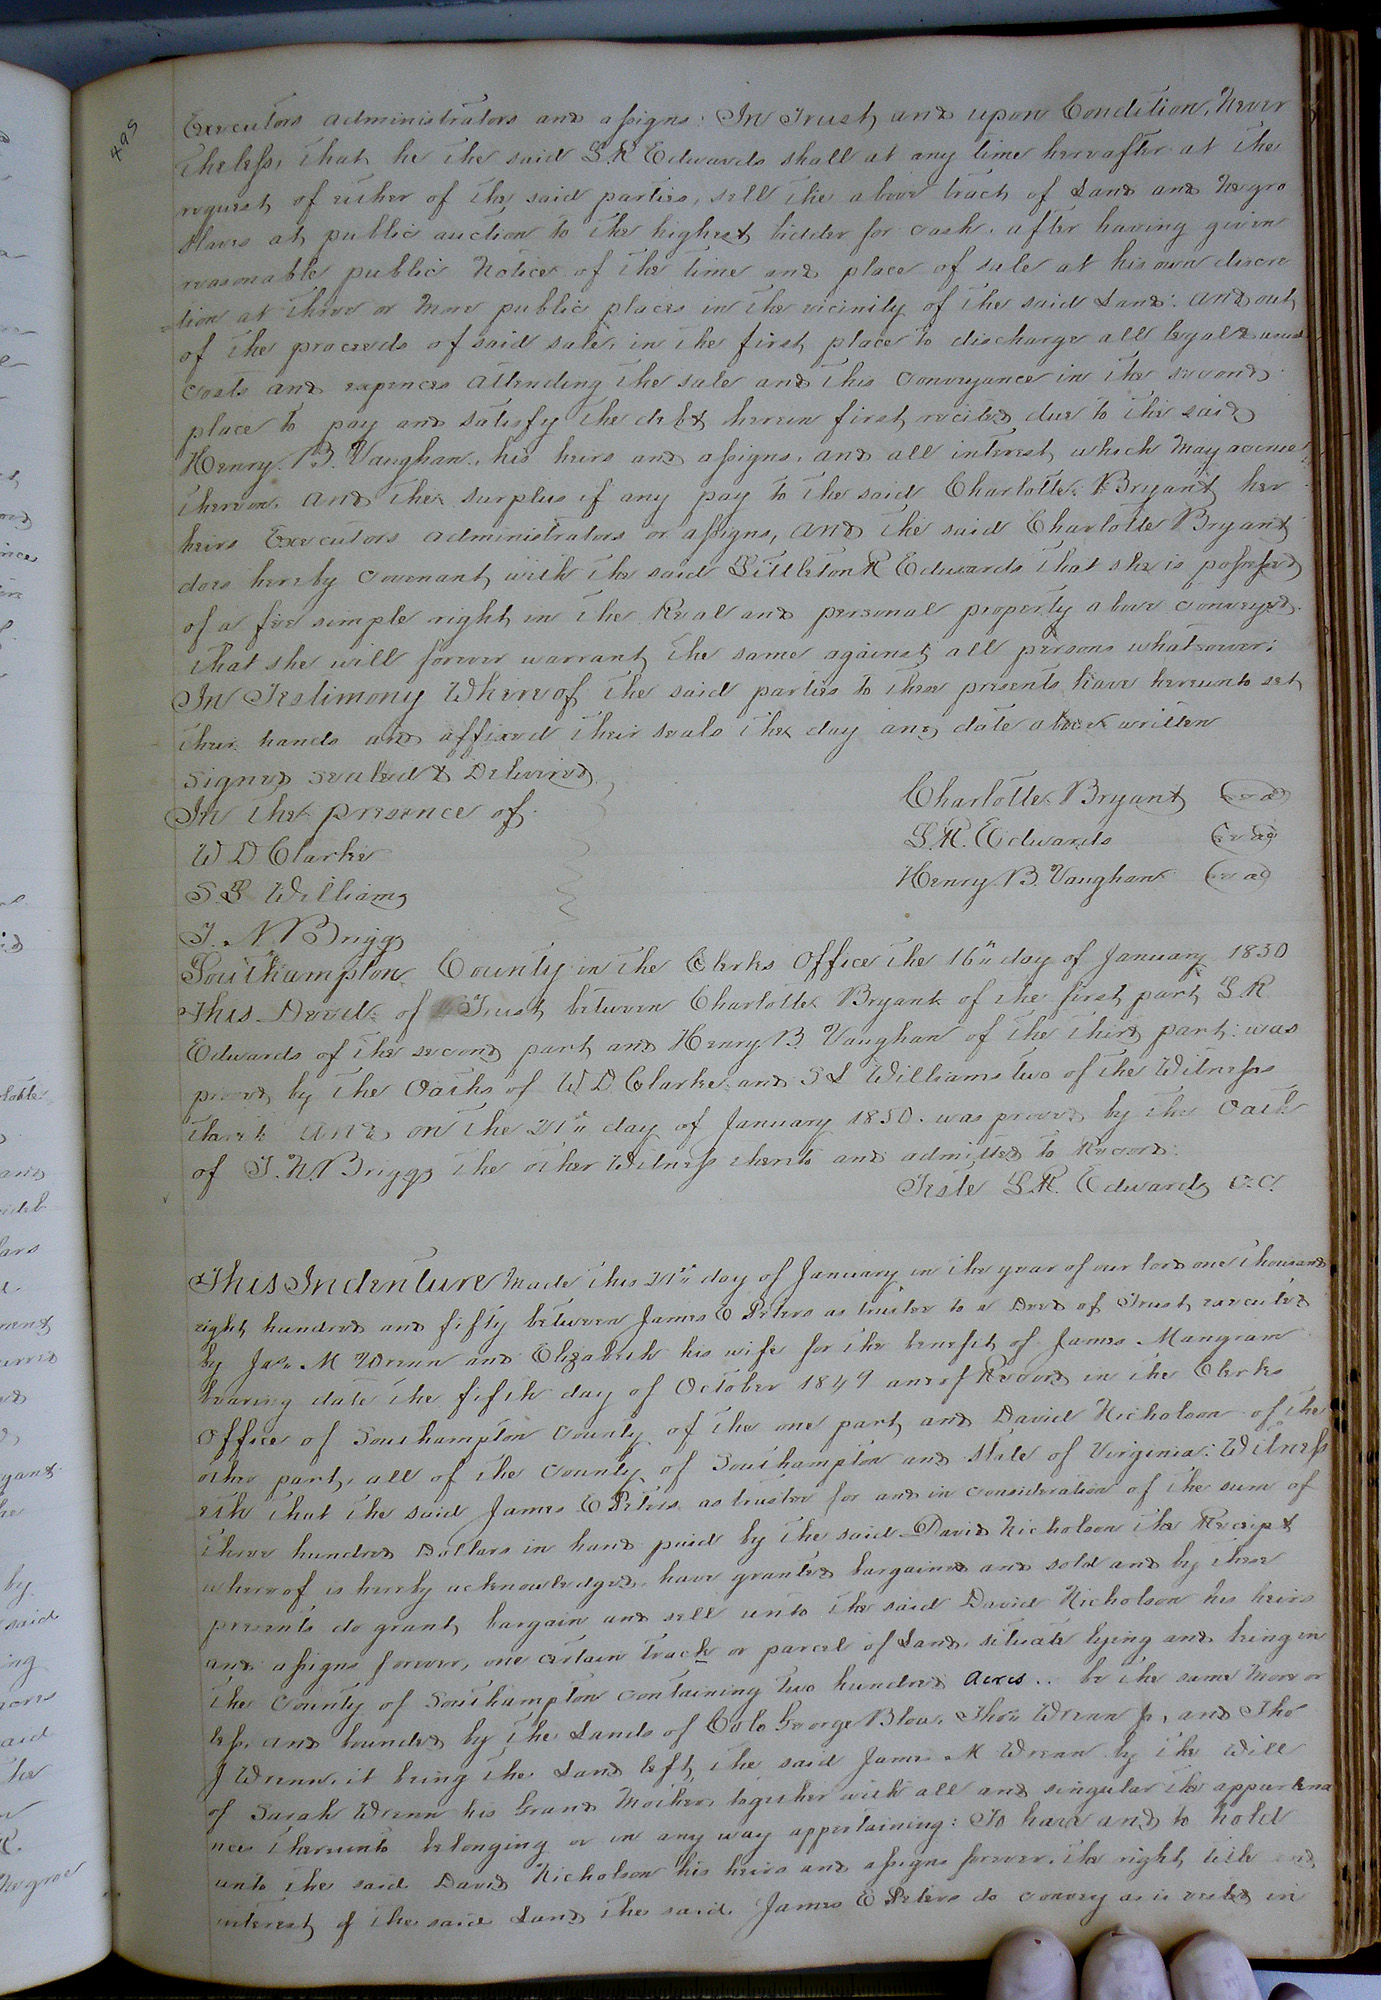 495
Executors administrators and assigns: In Trust and upon Condition, Never
theless, that he the said L R Edwards shall at any time hereafter at the
request of either of the said parties, sell the above tract of Land and Negro
slaves at public auction to the highest bidder for cash. after having given
reasonable public Notice of the time and place of sale at his own discre
tion at three or more public places in the vicinity of the said Land: and out
of the proceeds of said sale, in the first place to discharge all legal & usual
costs and expences attending the sale and this conveyance in the second
place to pay and satisfy the debt herein first recited due to the said
Henry B. Vaughan, his heirs and assigns, and all interest which may accrue
thereon. and the surplus if any pay to the said Charlotte Bryant her
heirs Executors administrators or assigns, and the said Charlotte Bryant
does hereby covenant with the said Littleton R Edwards that she is possessed
of a fee simple right in the Real and personal property above conveyed.
that she will forever warrant the same against all persons whatsoever:
In Testimony Whereof the said parties to these presents have hereunto set
their hands and affixed their seals the day and date above written
Signed sealed & Delivered
In the presence of
Charlotte Bryant (seal)
W D Clarke
L. R. Edwards (seal)
S. L Williams
Henry B. Vaughan (seal)
J. N. Briggs
Southampton County in the Clerks Office the 16th day of January 1850
This Deed of Trust between Charlotte Bryant of the first part L R
Edwards of the second part and Henry B. Vaughan of the third part: was
proved by the Oaths of W D. Clarke and S L Williams two of the Witness
thereto and on the 21st day of January 1850. was proved by the Oath
of J. N. Briggs the other Witness thereto and admitted to Record:
Teste L. R. Edwards C. C.
This Indenture Made this 21st day of January in the year of our lord one thousand
eight hundred and fifty between James E Peters as trustee to a Deed of Trust executed
by Jas. M Wrenn and Elizabeth his wife for the benefit of James Mangram
bearing date the fifth day of October 1849 and of Record in the Clerks
Office of Southampton County of the one part and David Nicholson of the
other part, all of the County of Southampton and state of Virginia: Witness
eth that the said James E Peters as trustee for and in consideration of the sum of
three hundred Dollars in hand paid by the said David Nicholson the Receipt
whereof is hereby acknowledged, have granted bargained and sold and by these
presents do grant, bargain and sell unto the said David Nicholson his heirs
and assigns forever, one certain track or parcel of Land situate lying and being in
the County of Southampton containing two hundred acres.. be the same more or
less, and bounded by the Lands of Colo George Blow, Thos Wrenn Jr, and Tho
J Wrenn, it being the Land left the said James M Wrenn by the Will
of Sarah Wrenn his Grand Mother, together with all and singular the appurtena
nces thereunto belonging or in any way appertaining: To have and to hold
unto the said David Nicholson his heirs and assigns forever. the right title and
interest of the said Land the said James E Peters do convey as is vested in